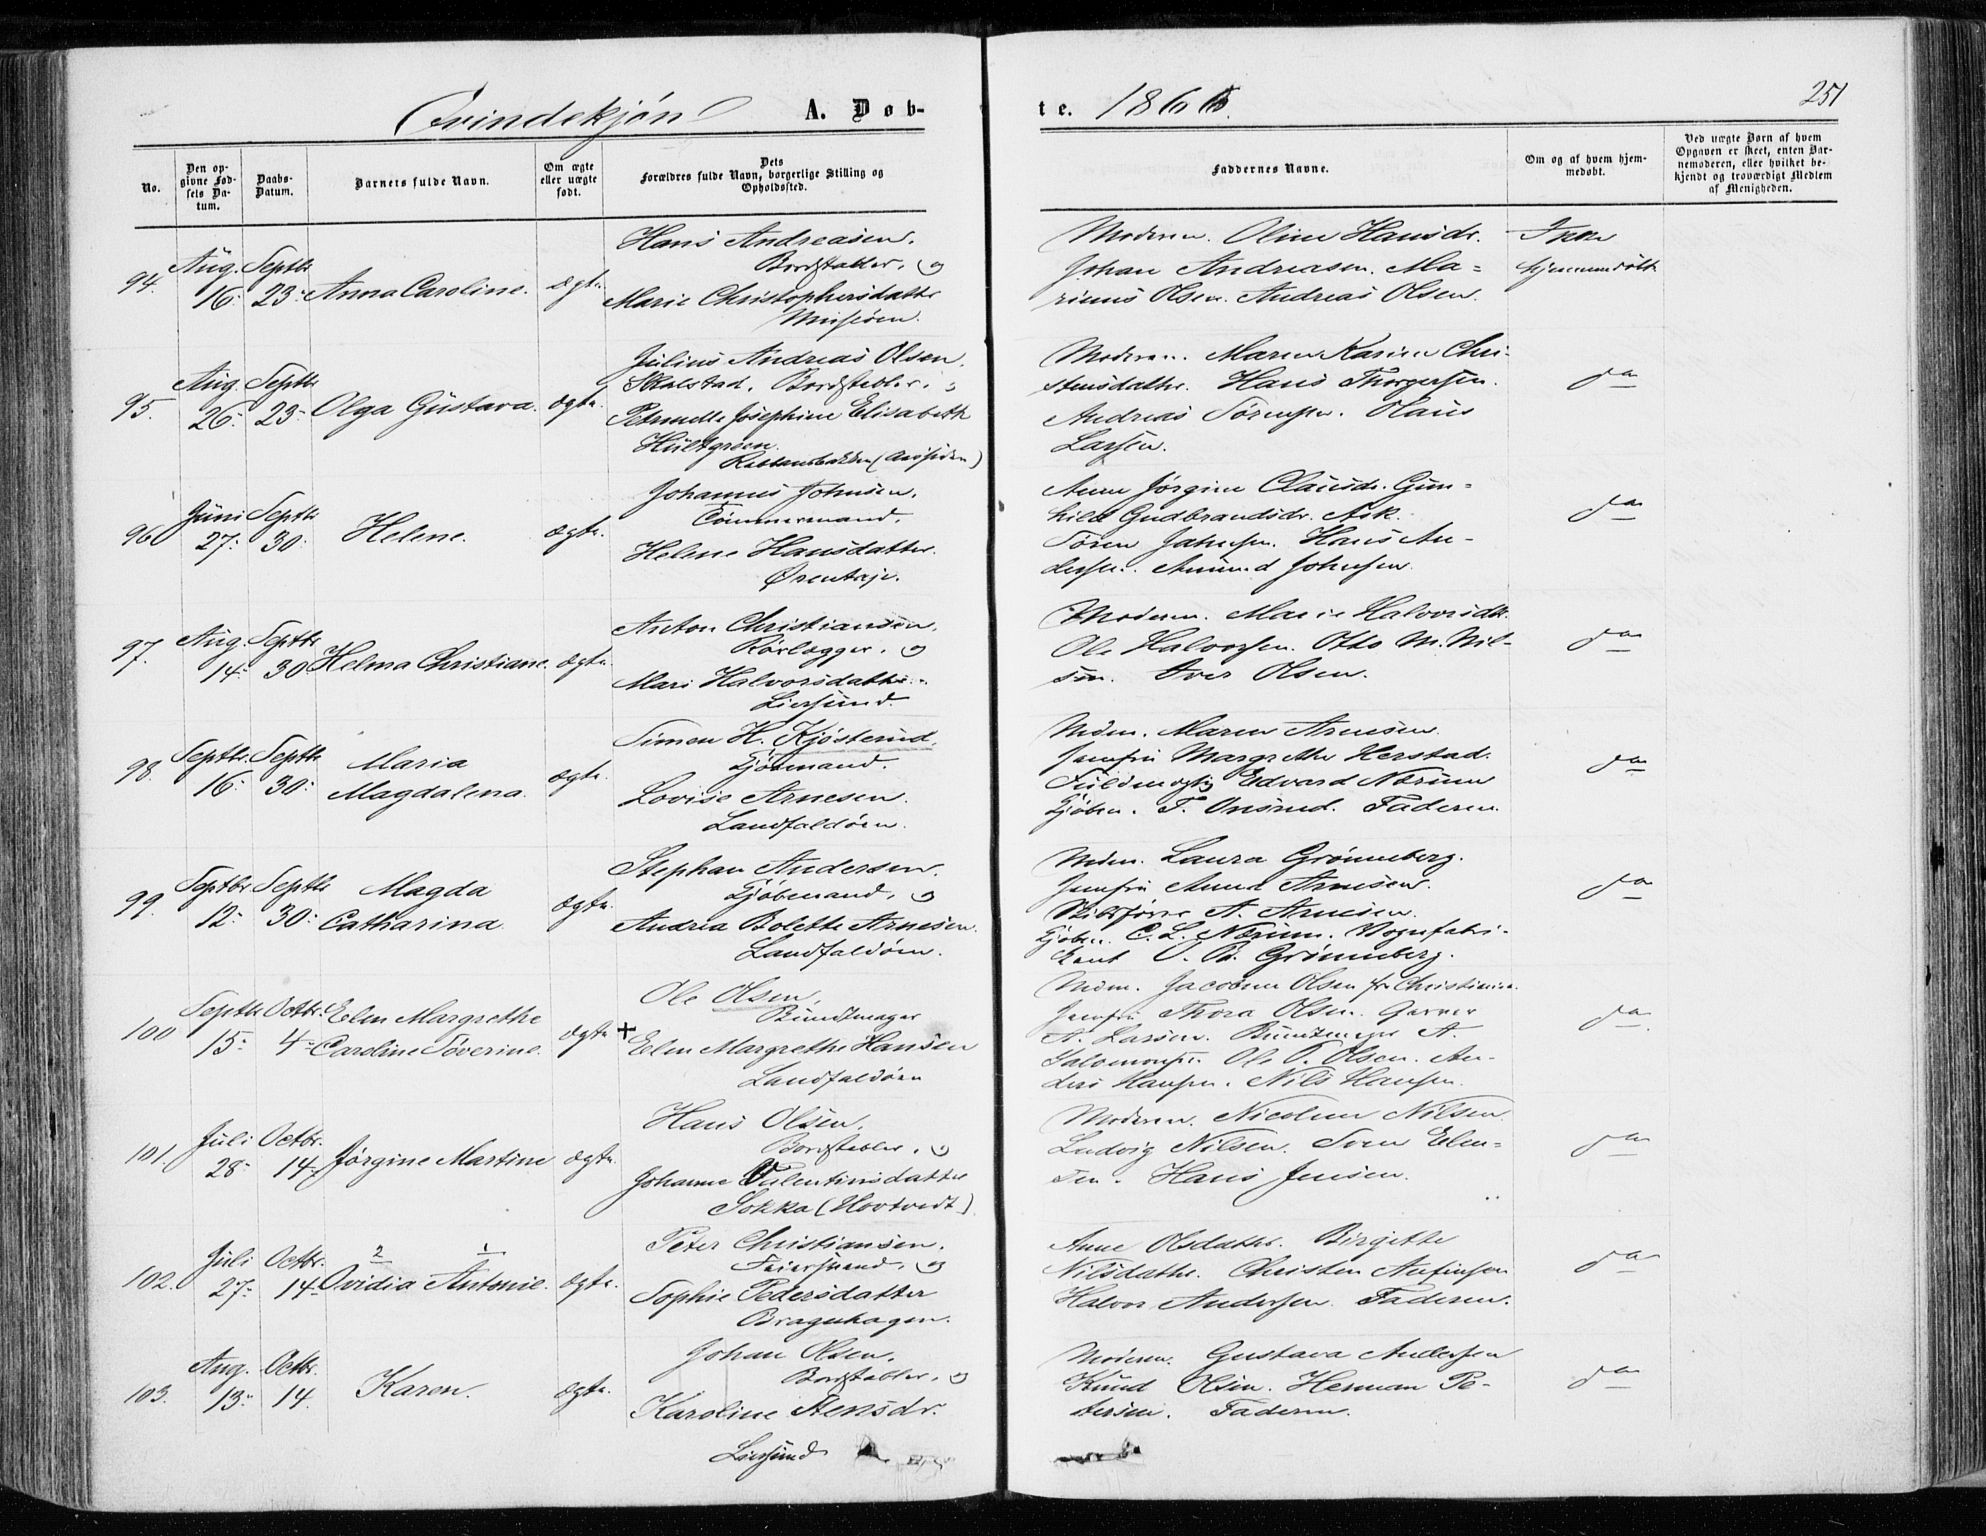 251
Qvindekjøn A. Døb-
te. 1866.
No.
Den op-
givne Fød-
sels Da-
tum.
Daabs-
Datum.
Barnets fulde Navn.
Om ægte
eller uægte
født.
Dets
Forældres fulde Navn, borgerlige Stilling og
Opholdssted.
Faddernes Navne.
Om og af hvem hjem-
medøbt.
Ved uægte Børn af hvem
Opgaven er skeet, enten Bar-
nemoderen, eller hvilket be-
kjendt og troværdigt Medlem
af Menigheden.
94. Aug. 16. Septbr 23. Anna Caroline. ægte.
Hans Andreasen,
Bordstabler, og
Marie Christophersdatter
Moderen. Oline Hansdr.
Johan Andreasen. Ma-
rinus Olsen. Andreas Olsen.
Ikke
hjemmedøbt
95. Aug. 26. Septbr 23. Olga Gustava. ægte.
Julius Andreas Olsen,
Skalstad, Bordstabler, og
Petronelle Josephine Elisabeth
Hültgreen.
Moderen. Maren Karine Chri-
stensdatter. Hans Thorgersen.
Andreas Sørensen. Claus
Larsen.
do
96. Juni 27. Septbr 30. Helene. ægte.
Johannes Johnsen,
Tømmermand,
Helene Hansdatter.
Ørentraje.
Anne Jørgine Clausdr. Gun-
hild Gudbrandsdr. Ask.
Søren Jahnsen. Hans An-
dersen. Amund Johnsen.
do
97. Aug. 14. Septbr 30. Helma Christiane. ægte.
Anton Christiansen,
Rørlægger, og
Mari Halvorsdatter.
Liersund.
Moderen. Marie Halvorsdtr.
Ole Halvorsen. Otto M. Nil-
sen. Iver Olsen.
do
98. Septbr. 16. Septbr 30. Maria
Magdalena. ægte.
Simen H. Kjøsterud,
Kjøbmand.
Lovise Arnesen.
Landfaldøen.
Mdm. Maren Arnesen.
Jomfru Margrethe Herstad.
Fuldmægtig Edvard Nærum
Kjøbm. T. Onsrud. Faderen.
do
99. Septbr 12. Septbr 30. Magda
Catharina. ægte.
Stephan Andersen,
Kjøbmand, og
Andrea Bolette Arnesen.
Landfaldøen.
Mdm. Laura Grønneberg.
Jomfru Anna Arnesen.
Skibsfører A. Arnesen.
Kjøbm. C. L. Nærum. Vognfabri-
kant O. B. Grønneberg.
do
100 Septbr 15. Octbr. 4. Elen Margrethe
Caroline Severine. ægte +
Ole Olsen,
Bundtmager
Elen Margrethe Hansen
Landfaldøen
Mdm. Jacobine Olsen fr. Christiania.
Jomfru Thora Olsen. Garver
A. Larsen. Bundtmager A.
Salomonsen. Ole T. Olsen. An-
ders Hansen. Nils Hansen.
do
101. Juli 28. Octbr. 14. Jørgine Martine ægte.
Hans Olsen,
Bordstabler, og
Johanne Valentinsdatter
Sokka (Hovtvedt)
Moderen. Nicoline Nilsen.
Ludvig Nilsen. Sven Elen-
sen. Hans Jensen.
do
102. Juli 27. Octbr. 14. 2 1
Ovidia Antonie. ægte.
Peter Christiansen,
Feiersvend, og
Sophie Pedersdatter
Bragehagen.
Anne Olsdatter. Birgitte
Nilsdatter. Christen Anfinsen
Halvor Andersen. Faderen.
do
103. Aug. 13. Octbr. 14. Karen. ægte.
Johan Olsen,
Bordstabler, og
Karoline Stensdr.
Liersund
Moderen. Gustava Andersen
Knud Olsen. Herman Pe-
tersen. Faderen.
do